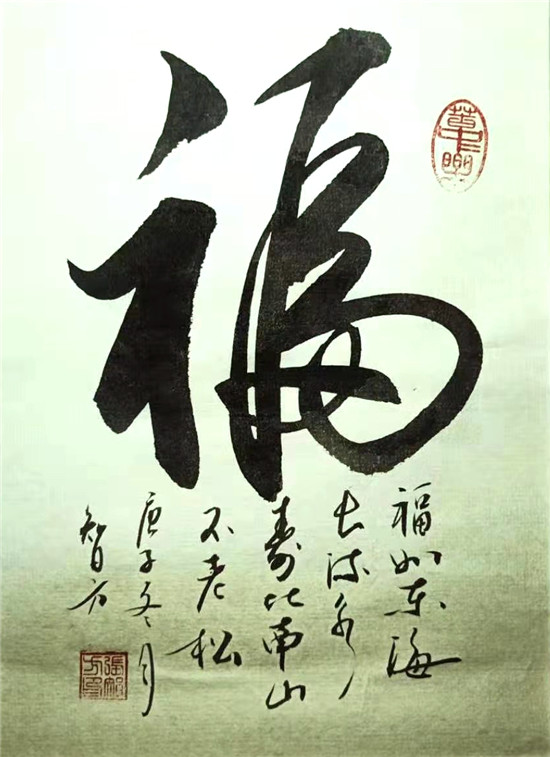 福
福如东海
长流水
寿比南山
不老松
庚子冬月
智方
張智方印